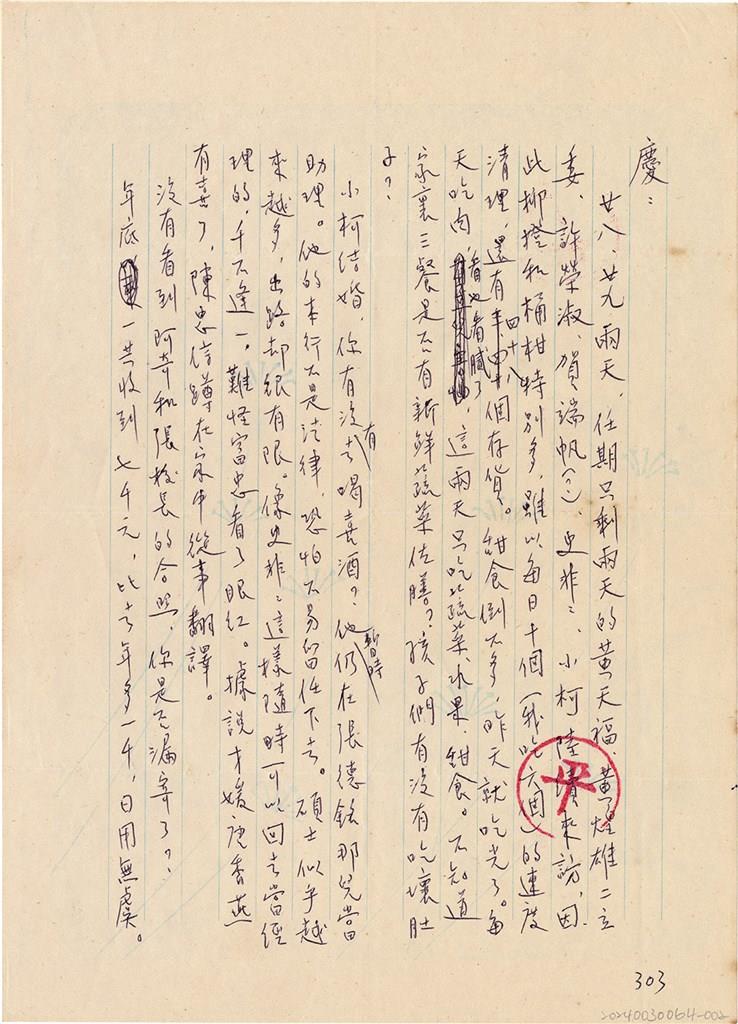 慶：
廿八、廿九兩天，任期只剩兩天的黃天福、黃煌雄二立
委、許榮淑、賀端帆(?)、史非非、小柯陸續來訪，因
此柳橙和桶柑特別多，雖以每日十個(我吃六個)的速度
清理，還有四十個存貨。甜食倒不多，昨天就吃光了。每
天吃肉，看也看膩了，這兩天只吃蔬菜、水果、甜食。不知道
家裏三餐是否有新鮮蔬菜佐膳？孩子們有沒有吃壞肚
子？
小柯結婚，你有沒有去喝喜酒？他仍暫時在張德銘那兒當
助理。他的本行不是法律，恐怕不易留任下去。碩士似乎越
來越多，出路却很有限。像史非非這樣隨時可以回去當經
理的，千不逢一。難怪富忠看了眼紅。據說才媛唐香燕
有喜了，陳忠信蹲在家中從事翻譯。
沒有看到阿奇和張校長的合照，你是否漏寄了？
年底一共收到七千元，比去年多一千，日用無虞。
平
303
20240030064-002